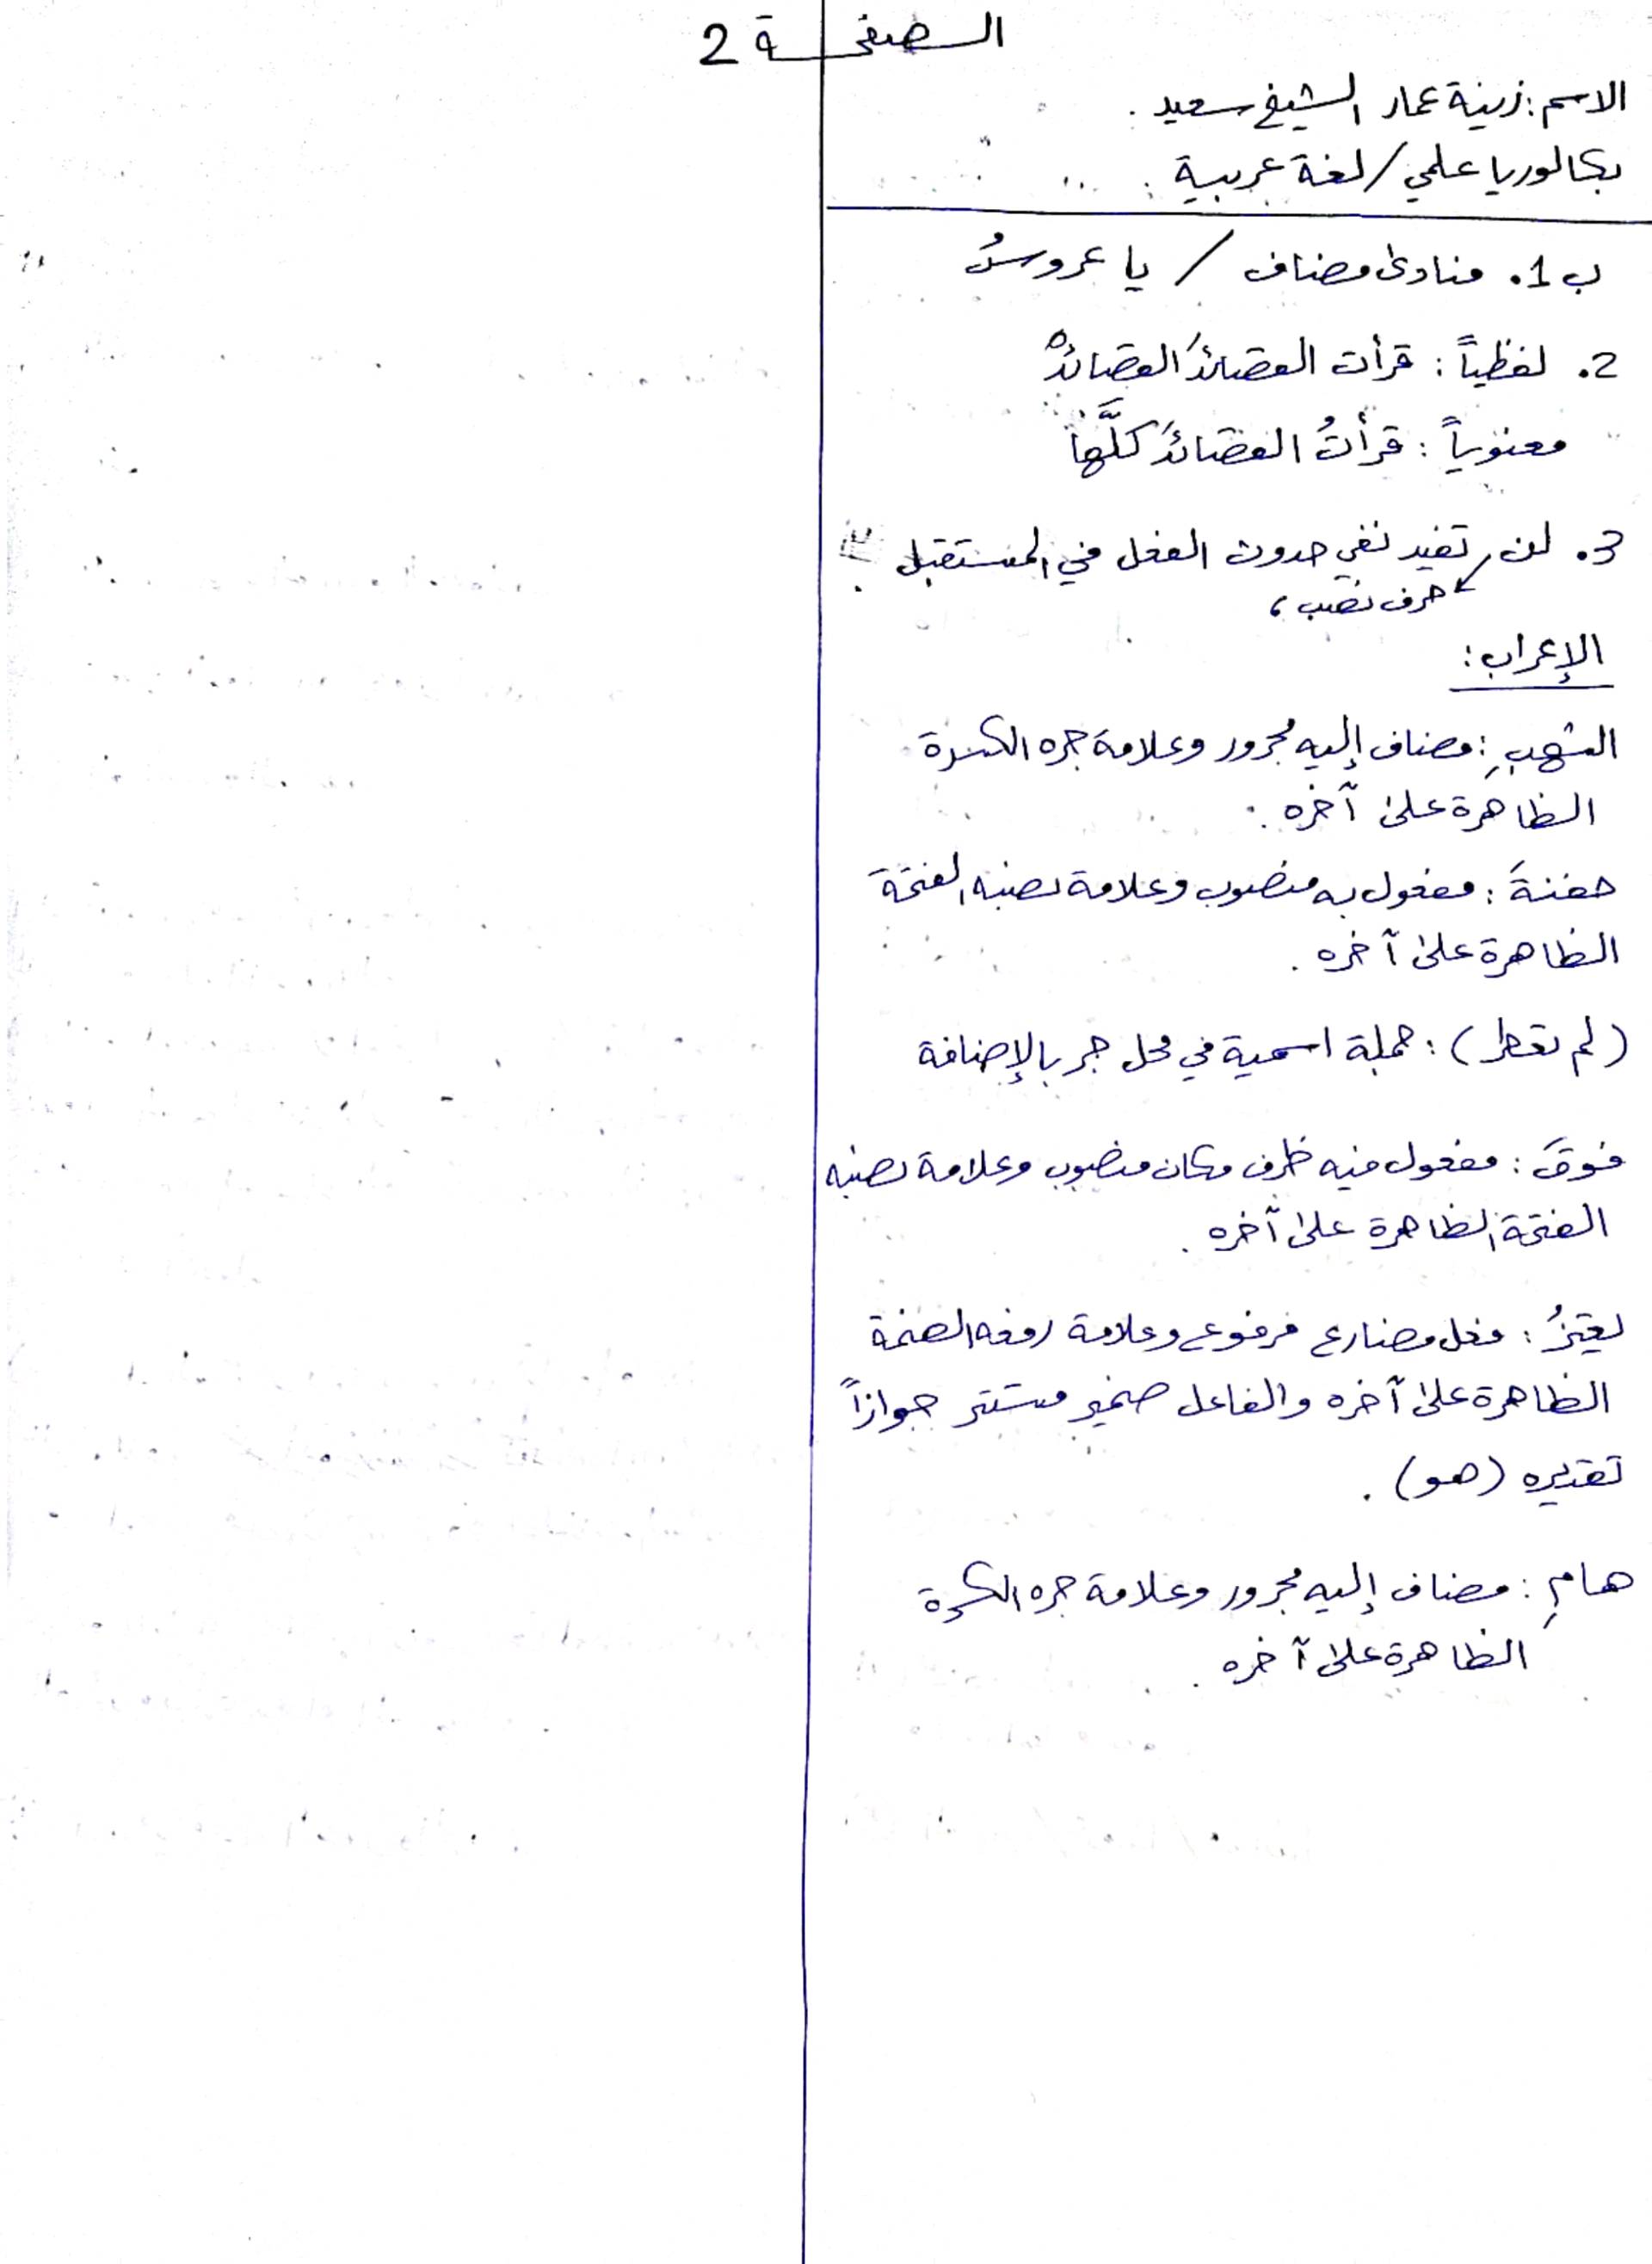 الصفحة 2
الاسم: زينة عمار الشيخ سعيد.
بكالوريا علمي / لغة عربية
ب 1. منادى مضاف / يا عروسُ
2. لفظياً: قرأت القصائدَ القصائدَ
معنوياً: قرأتُ القصائدَ كلَّها
3. لن تفيد نفي حدوث الفعل في المستقبل.
حرف نصب،
الإعراب:
الشهبِ: مضاف إليه مجرور وعلامة جره الكسرة
الظاهرة على آخره.
حفنةَ: مفعول به منصوب وعلامة نصبه الفتحة
الظاهرة على آخره.
(لم تعط): جملة اسمية في محل جر بالإضافة
فوقَ: مفعول فيه ظرف مكان منصوب وعلامة نصبه
الفتحة الظاهرة على آخره.
يعتزُ: فعل مضارع مرفوع وعلامة رفعه الضمة
الظاهرة على آخره والفاعل ضمير مستتر جوازاً
تقديره (هو).
هامِ: مضاف إليه مجرور وعلامة جره الكسرة
الظاهرة على آخره.